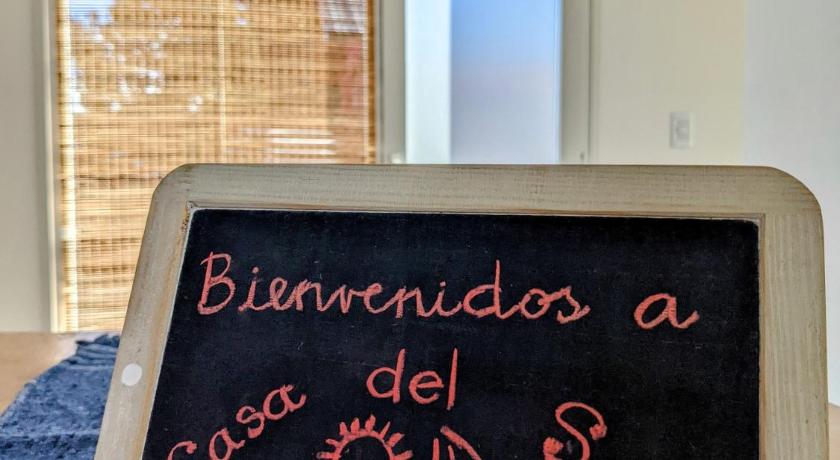 Bienvenidos a
Casa del